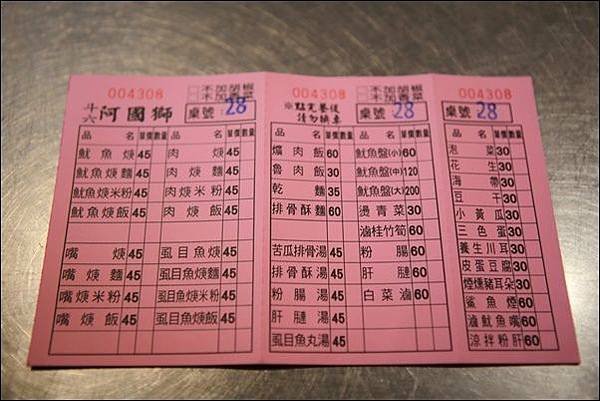 004308 不加胡椒
不加香菜
斗六 阿國獅 桌號: 28
品名 單價 數量 品名 單價 數量
魷魚焿 45 肉焿 45
魷魚焿麵 45 肉焿麵 45
魷魚焿米粉 45 肉焿米粉 45
魷魚焿飯 45 肉焿飯 45
嘴焿 45 虱目魚焿 45
嘴焿麵 45 虱目魚焿麵 45
嘴焿米粉 45 虱目魚焿米粉 45
嘴焿飯 45 虱目魚焿飯 45
004308 不加胡椒
不加香菜
※點完餐後
請勿換桌 桌號: 28
品名 單價 數量 品名 單價 數量
爌肉飯 60 魷魚盤(小) 60
魯肉飯 30 魷魚盤(中) 120
乾麵 35 魷魚盤(大) 200
排骨酥麵 60 燙青菜 30
滷桂竹筍 60
苦瓜排骨湯 45 粉腸 60
排骨酥湯 45 肝膽 60
粉腸湯 45 白菜滷 60
肝膽湯 45
虱目魚丸湯 45
004308
桌號: 28
品名 單價 數量
泡菜 30
花生 30
海帶 30
豆干 30
小黃瓜 30
三色蛋 30
養生川耳 30
皮蛋豆腐 30
煙燻豬耳朵 30
鯊魚煙 60
滷魷魚嘴 60
涼拌粉肝 60